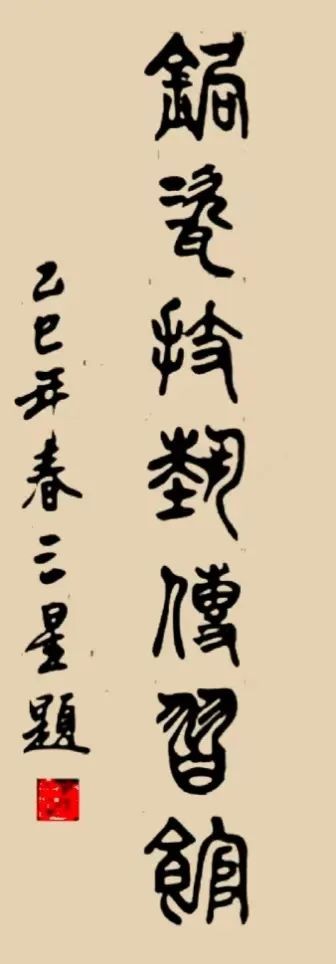 鋦瓷技藝傳習館
乙巳年春三星題